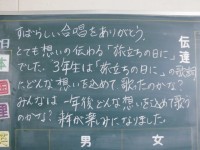 すばらしい合唱をありがとう。
とても想いの伝わる「旅立ちの日に」
でした。3年生は「旅立ちの日に」の歌詞
にどんな想いを込めて歌ったのかな？
みんなは一年後どんな想いを込めて歌う
のかな？ 来年が楽みになりました。
伝達
男 女
国
理